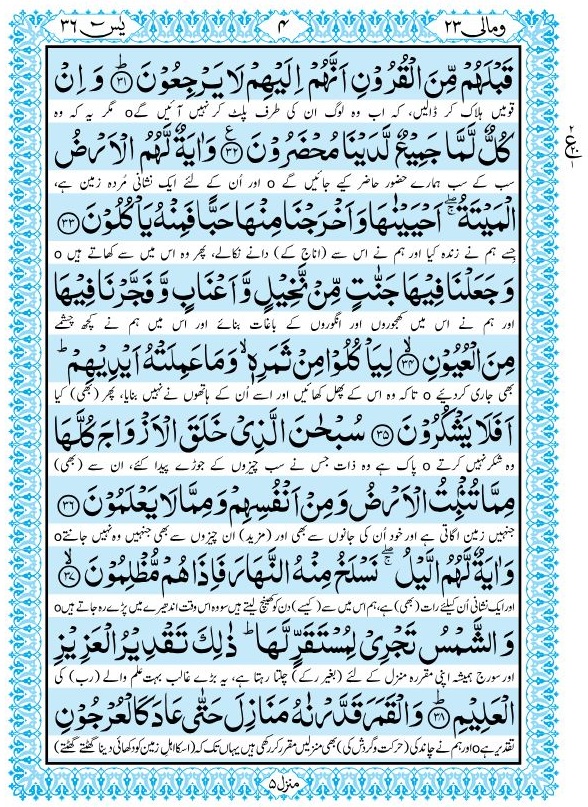 ومالی ۲۳ ۴ یٰسٓ ۳۶
قَبۡلَہُمۡ مِّنَ الۡقُرُوۡنِ اَنَّہُمۡ اِلَیۡہِمۡ لَا یَرۡجِعُوۡنَ ﴿ؕ۳۱﴾ وَ اِنۡ
قومیں ہلاک کر ڈالیں، کہ اب وہ لوگ ان کی طرف پلٹ کر نہیں آئیں گے o مگر یہ کہ وہ
کُلٌّ لَّمَّا جَمِیۡعٌ لَّدَیۡنَا مُحۡضَرُوۡنَ ﴿٪۳۲﴾ وَ اٰیَۃٌ لَّہُمُ الۡاَرۡضُ
سب کے سب ہمارے حضور حاضر کیے جائیں گے o اور اُن کے لئے ایک نشانی مُردہ زمین ہے،
الۡمَیۡتَۃُ ۚۖ اَحۡیَیۡنٰہَا وَ اَخۡرَجۡنَا مِنۡہَا حَبًّا فَمِنۡہُ یَاۡکُلُوۡنَ ﴿۳۳﴾
جسے ہم نے زندہ کیا اور ہم نے اس سے (اناج کے) دانے نکالے، پھر وہ اس میں سے کھاتے ہیں o
وَ جَعَلۡنَا فِیۡہَا جَنّٰتٍ مِّنۡ نَّخِیۡلٍ وَّ اَعۡنَابٍ وَّ فَجَّرۡنَا فِیۡہَا
اور ہم نے اس میں کھجوروں اور انگوروں کے باغات بنائے اور اس میں ہم نے کچھ چشمے
مِنَ الۡعُیُوۡنِ ﴿ۙ۳۴﴾ لِیَاۡکُلُوۡا مِنۡ ثَمَرِہٖ ۙ وَ مَا عَمِلَتۡہُ اَیۡدِیۡہِمۡ ؕ
بھی جاری کردیئے o تاکہ وہ اس کے پھل کھائیں اور اسے اُن کے ہاتھوں نے نہیں بنایا، پھر (بھی) کیا
اَفَلَا یَشۡکُرُوۡنَ ﴿۳۵﴾ سُبۡحٰنَ الَّذِیۡ خَلَقَ الۡاَزۡوَاجَ کُلَّہَا
وہ شکر نہیں کرتے o پاک ہے وہ ذات جس نے سب چیزوں کے جوڑے پیدا کئے، ان سے (بھی)
مِمَّا تُنۡۢبِتُ الۡاَرۡضُ وَ مِنۡ اَنۡفُسِہِمۡ وَ مِمَّا لَا یَعۡلَمُوۡنَ ﴿۳۶﴾
جنہیں زمین اگاتی ہے اور خود اُن کی جانوں سے بھی اور (مزید) ان چیزوں سے بھی جنہیں وہ نہیں جانتے o
وَ اٰیَۃٌ لَّہُمُ الَّیۡلُ ۚۖ نَسۡلَخُ مِنۡہُ النَّہَارَ فَاِذَا ہُمۡ مُّظۡلِمُوۡنَ ﴿ۙ۳۷﴾
اور ایک نشانی اُن کیلئے رات (بھی) ہے، ہم اس میں سے (کیسے) دن کو کھینچ لیتے ہیں سو وہ اس وقت اندھیرے میں پڑے رہ جاتے ہیں o
وَ الشَّمۡسُ تَجۡرِیۡ لِمُسۡتَقَرٍّ لَّہَا ؕ ذٰلِکَ تَقۡدِیۡرُ الۡعَزِیۡزِ
اور سورج ہمیشہ اپنی مقررہ منزل کے لئے (بغیر رکے) چلتا رہتا ہے، یہ بڑے غالب بہت علم والے (رب) کی
الۡعَلِیۡمِ ﴿ؕ۳۸﴾ وَ الۡقَمَرَ قَدَّرۡنٰہُ مَنَازِلَ حَتّٰی عَادَ کَالۡعُرۡجُوۡنِ
تقدیر ہے o اور ہم نے چاند کی (حرکت و گردش کی) بھی منزلیں مقرر کر رکھی ہیں یہاں تک کہ (اسکا اہلِ زمین کو دکھائی دینا گھٹتے گھٹتے)
منزل ۵